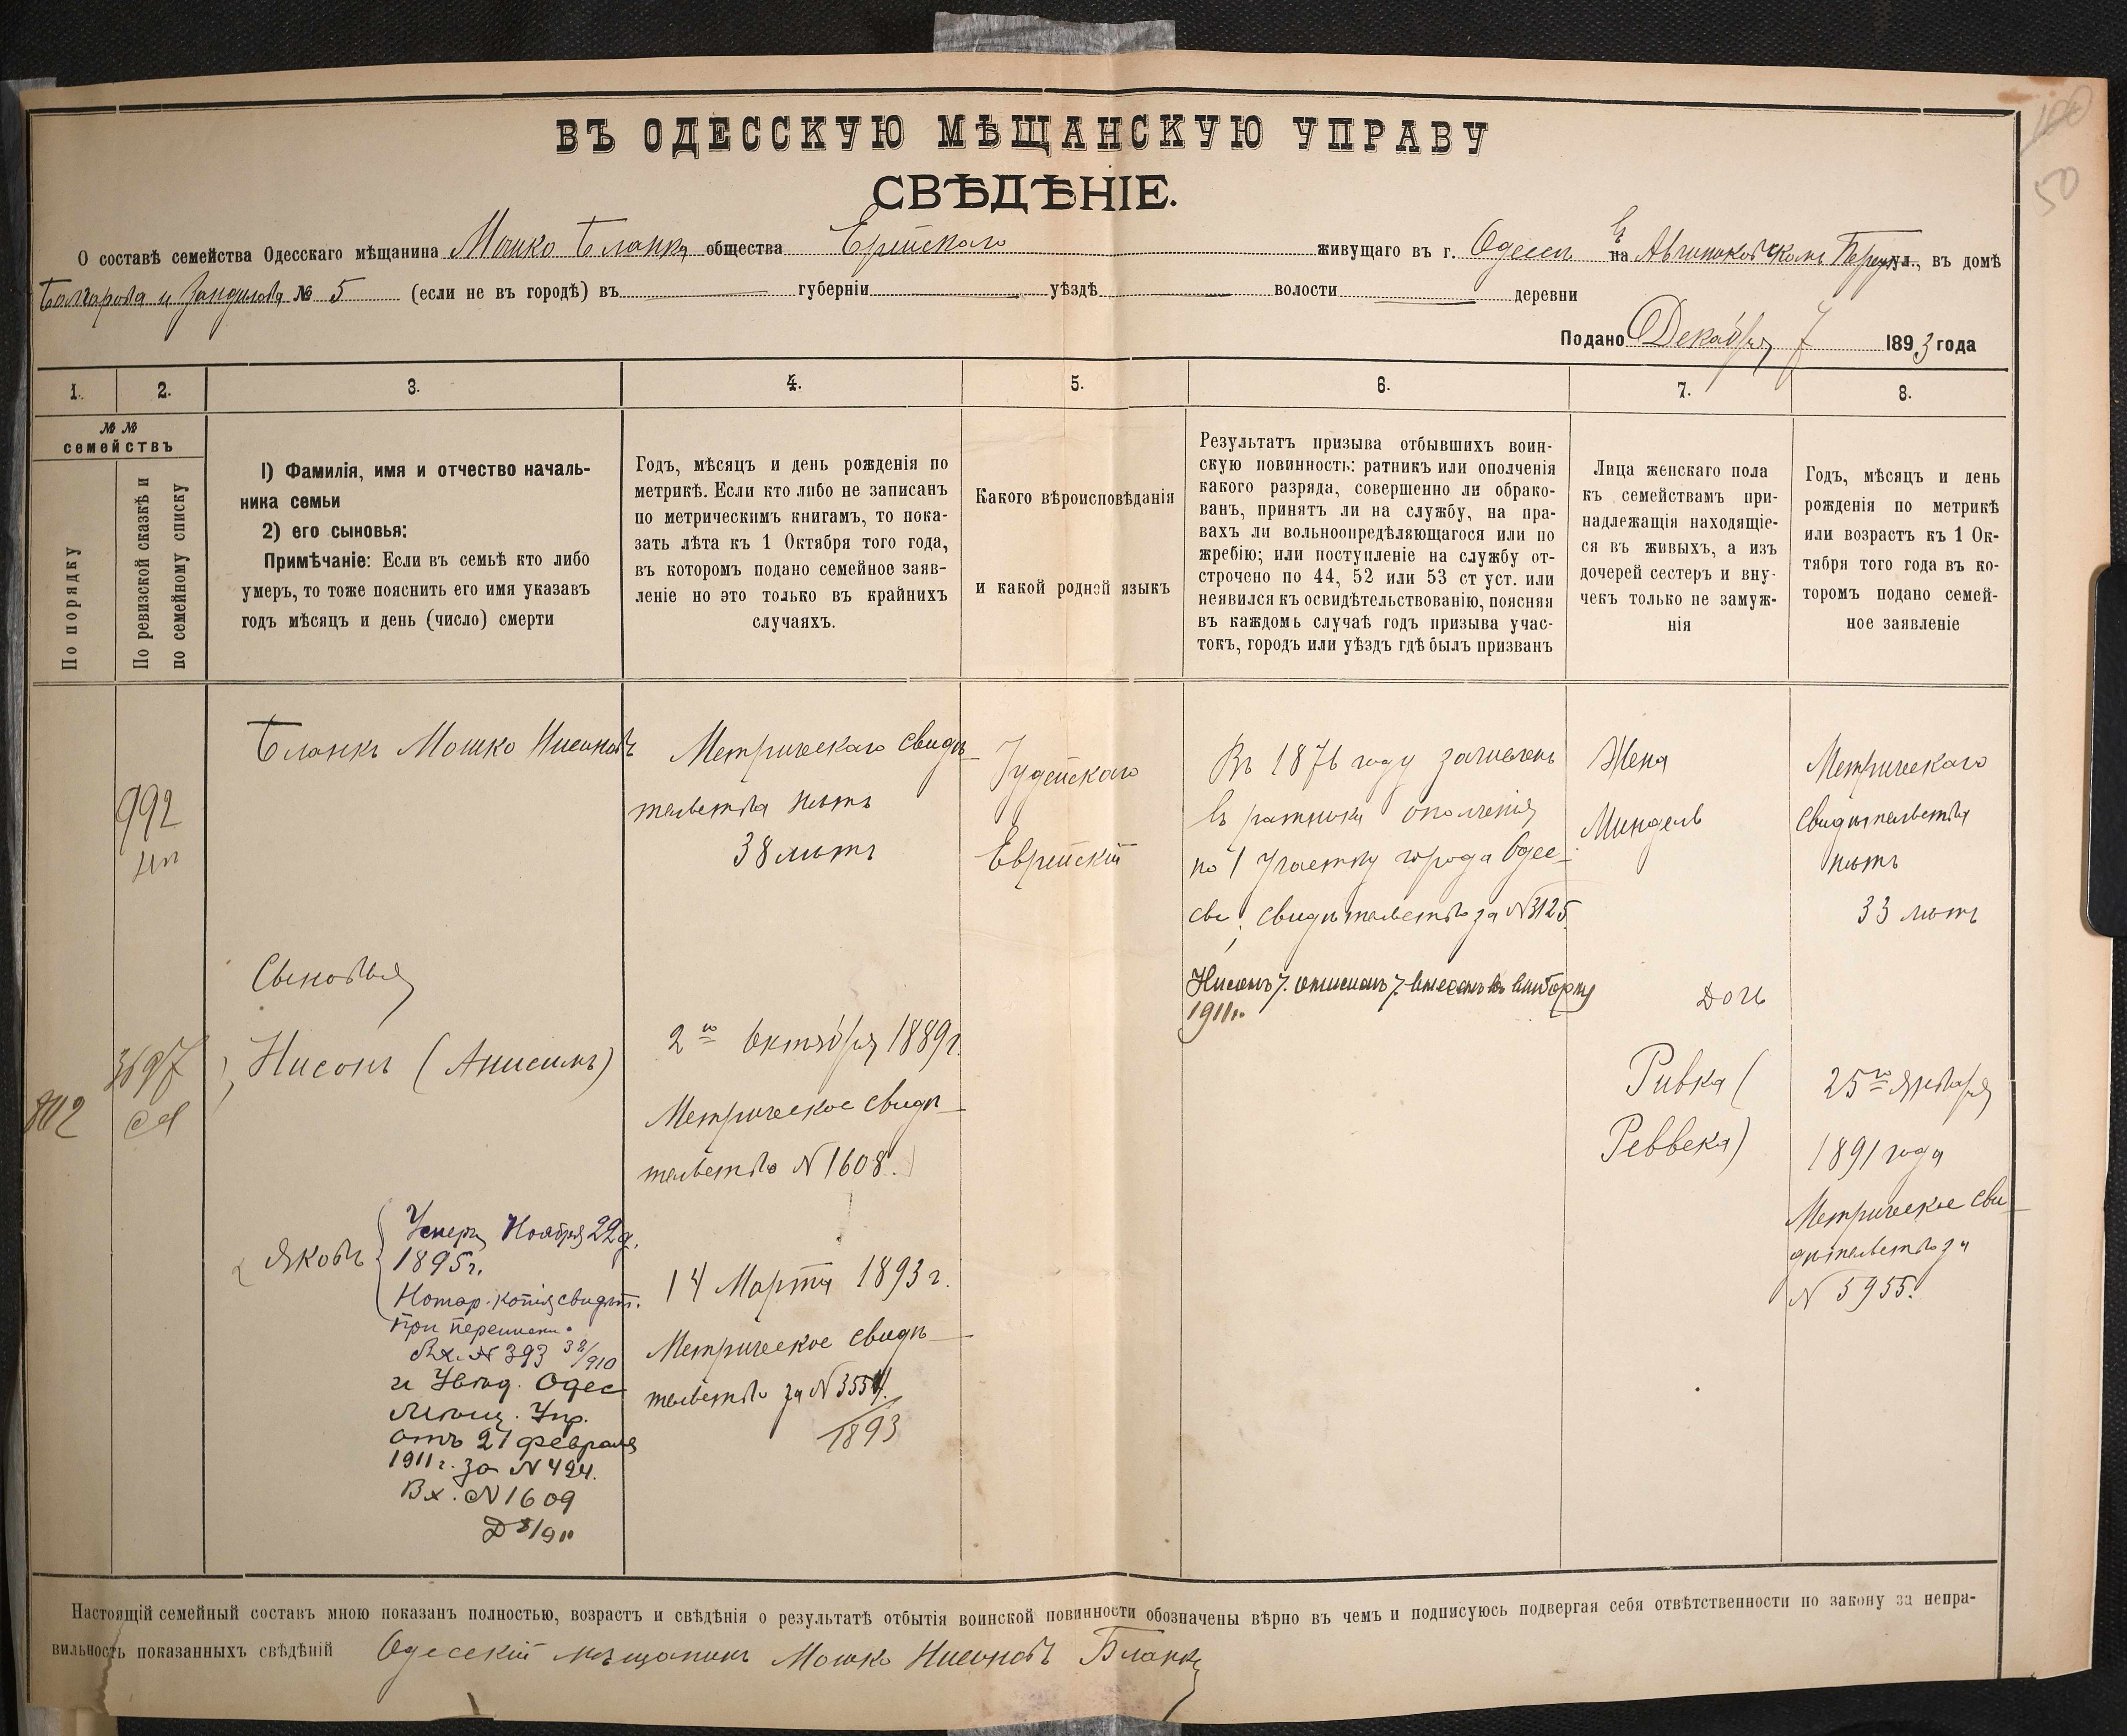 100
50
ВЪ ОДЕССКУЮ МѢЩАНСКУЮ УПРАВУ
СВѢДѢНІЕ.
О составѣ семейства Одесскаго мѣщанина Мошко Бланка общества Еврейскаго живущаго въ г. Одессѣ въ на Авчинниковскомъ Переул., въ домѣ
№ 5 (если не въ городѣ) въ губерніи уѣздѣ волости деревни
Подано Декабря 7 1893 года
1. 2. 3. 4. 5. 6. 7. 8.
№ № семействъ
По порядку
По ревизской сказкѣ и по семейному списку
1) Фамилія, имя и отчество началь-
ника семьи
2) его сыновья:
Примѣчаніе: Если въ семьѣ кто либо
умеръ, то тоже пояснить его имя указавъ
годъ мѣсяцъ и день (число) смерти
Годъ, мѣсяцъ и день рожденія по
метрикѣ. Если кто либо не записанъ
по метрическимъ книгамъ, то пока-
зать лѣта къ 1 Октября того года,
въ которомъ подано семейное заяв-
леніе но это только въ крайнихъ
случаяхъ.
Какого вѣроисповѣданія
и какой родной языкъ
Результатъ призыва отбывшихъ воин-
скую повинность: ратникъ или ополченія
какого разряда, совершенно ли обрако-
ванъ, принятъ ли на службу, на пра-
вахъ ли вольноопредѣляющагося или по
жребію; или поступленіе на службу от-
строчено по 44, 52 или 53 ст уст. или
неявился къ освидѣтельствованію, поясняя
въ каждомъ случаѣ годъ призыва учас-
токъ, городъ или уѣздъ гдѣ былъ призванъ
Лица женскаго пола
къ семействамъ при-
надлежащія находящіе-
ся въ живыхъ, а изъ
дочерей сестеръ и вну-
чекъ только не замуж-
нія
Годъ, мѣсяцъ и день
рожденія по метрикѣ
или возрастъ къ 1 Ок-
тября того года въ ко-
торомъ подано семей-
ное заявленіе
992
Бланкъ Мошко Нисоновъ
Метрическаго свидѣ-
тельства нѣтъ
38 лѣтъ
Іудейскаго
Еврейскій
Въ 1876 году зачисленъ
въ ратники ополченія
по 1 участку города Одес-
сы; свидѣтельство за N 3125.
Жена
Миндель
Метрическаго
свидѣтельства
нѣтъ
33 лѣтъ
802
3697
Сыновья
Нисонъ (Анисимъ)
2го Октября 1889 г.
Метрическое свидѣ-
тельство N 1608.
1911 г.
Дочь
Ривка (
Реввека)
25го Января
1891 года
Метрическое сви-
дѣтельство за
N 5955.
Яковъ
Умеръ Ноября 22 д.
1895 г.
Нотар. копія свидѣт.
при переписки
Вх. N 393 32/910
и Увѣд. Одес
Мѣщ. Упр.
отъ 27 февраля
1911 г. за N 494.
Вх. N 1609
14 Марта 1893 г.
Метрическое свидѣ-
тельство за N 3554
1893
Настоящій семейный составъ мною показанъ полностью, возрастъ и свѣдѣнія о результатѣ отбытія воинской повинности обозначены вѣрно въ чемъ и подписуюсь подвергая себя отвѣтственности по закону за непра-
вильность показанныхъ свѣдѣній Одесскій мѣщанинъ Мошко Нисоновъ Бланкъ